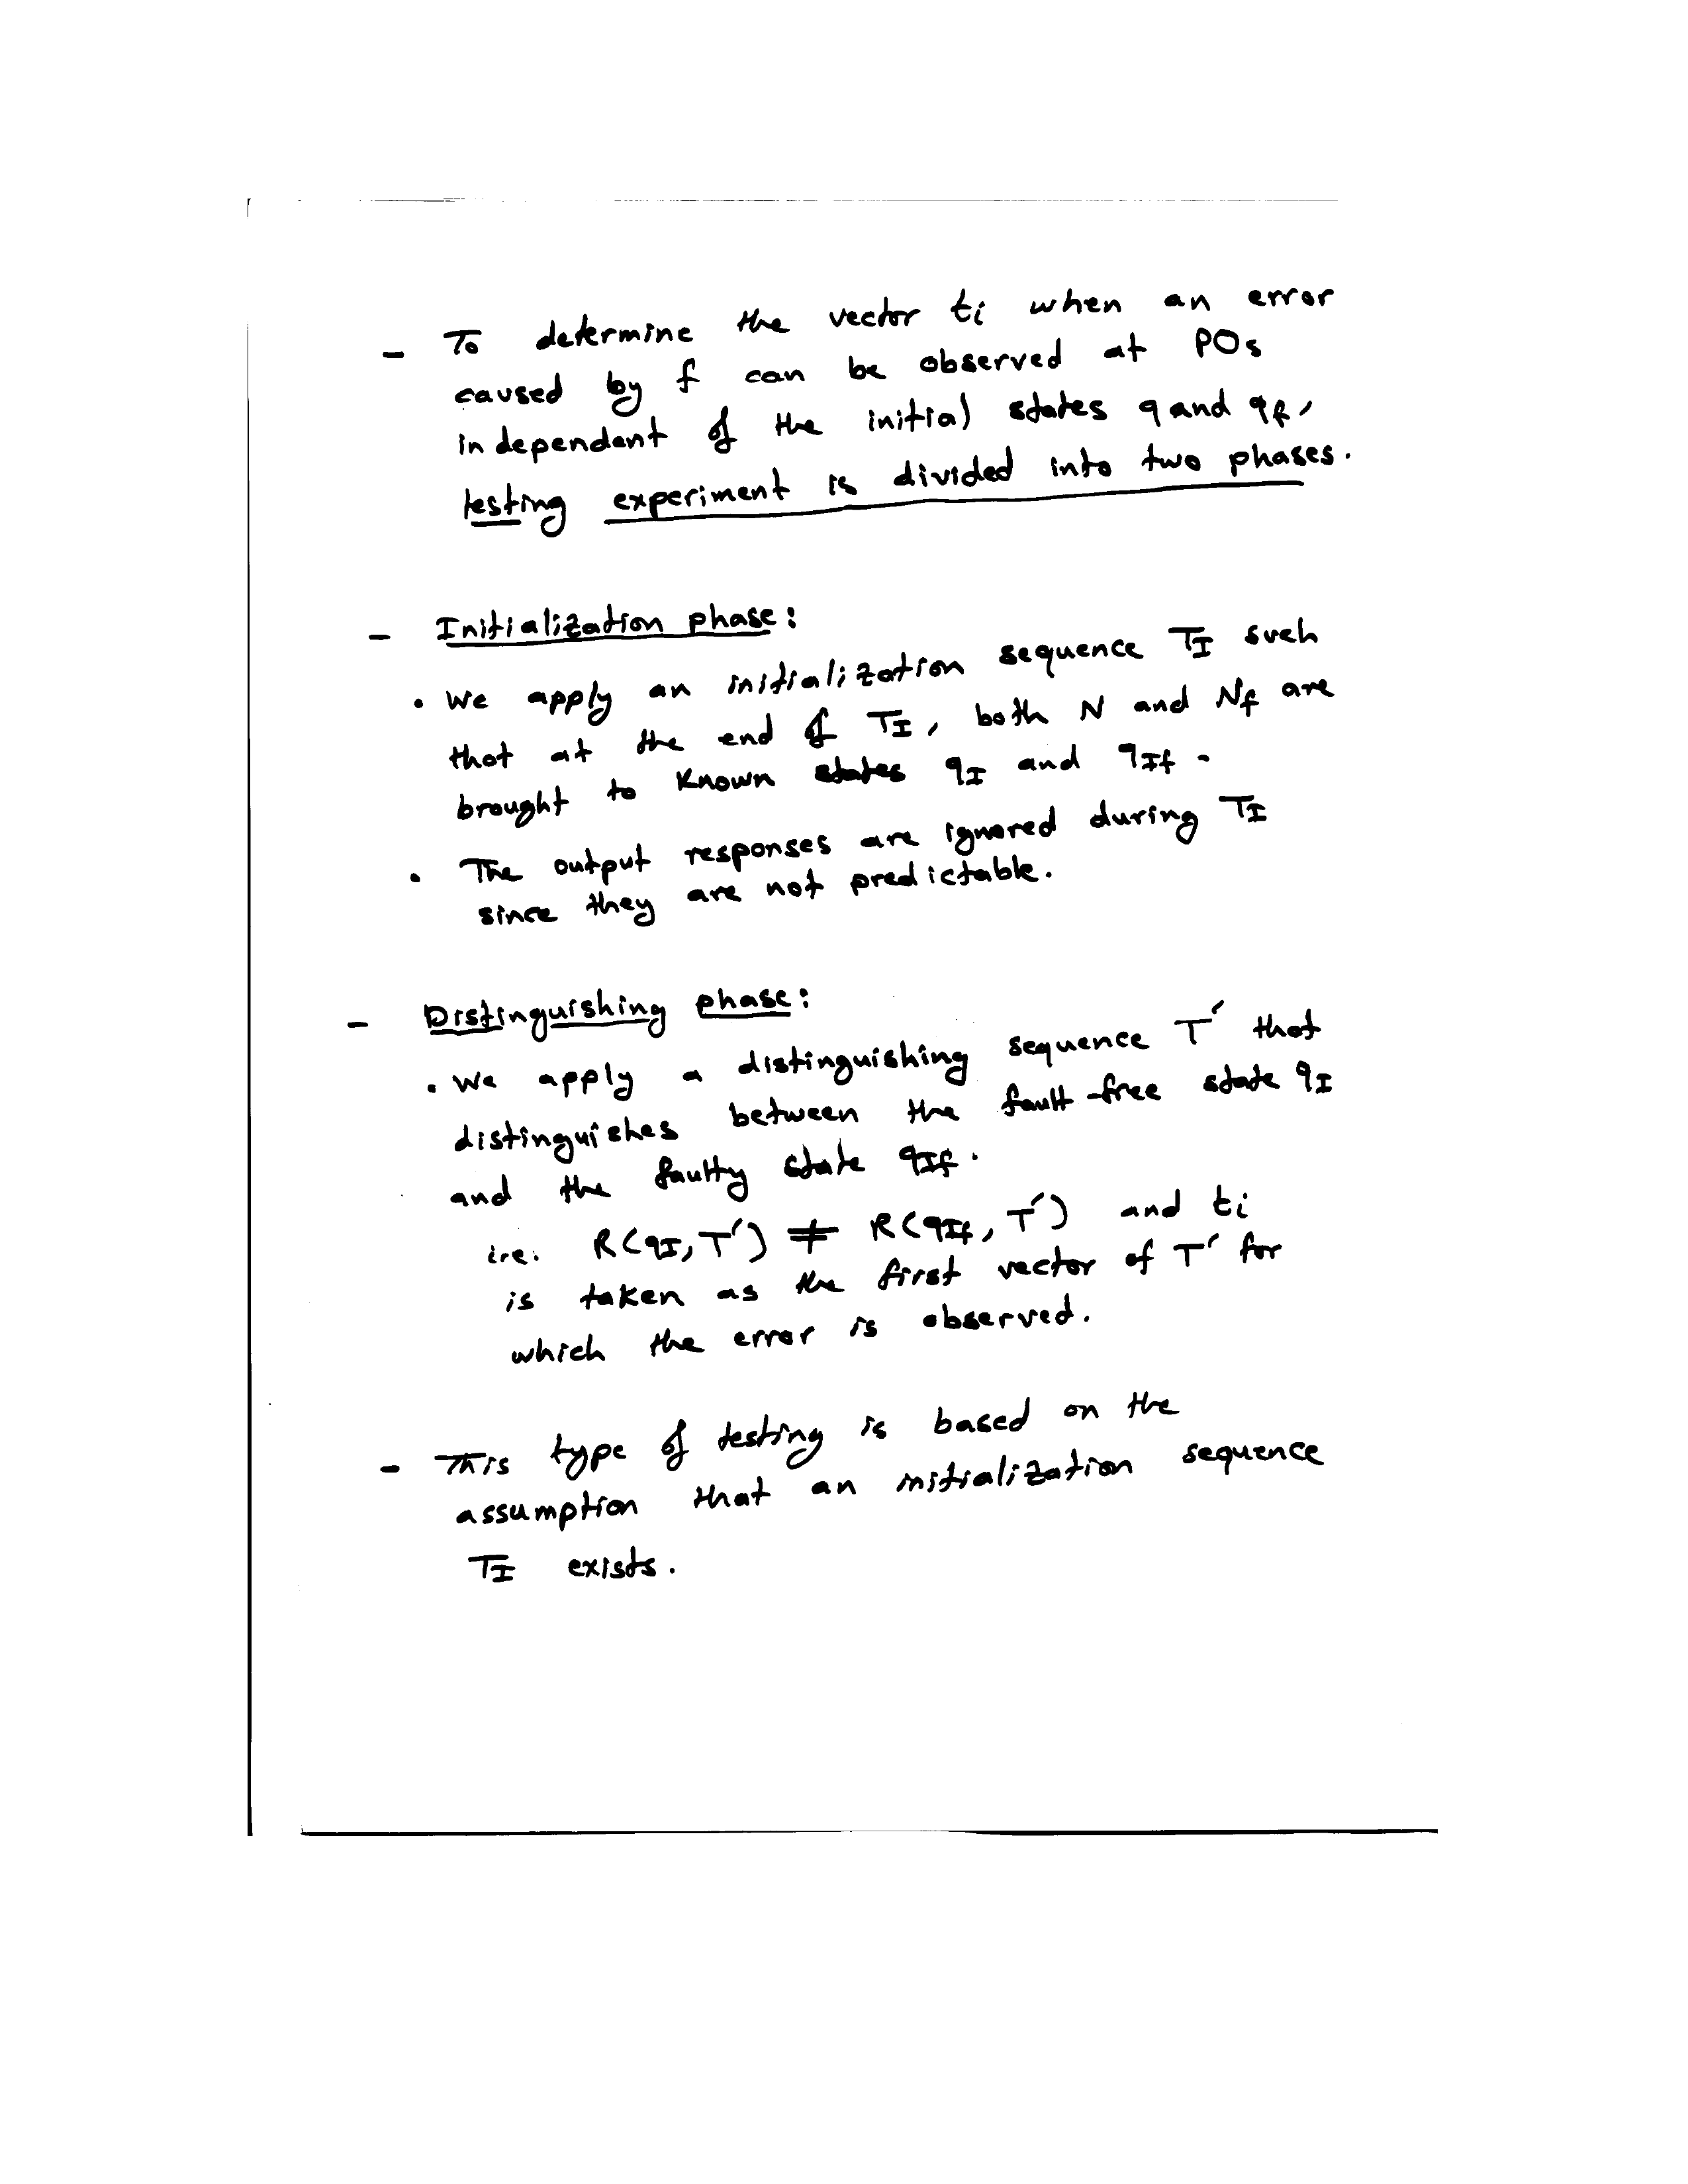 - To determine the vector ti when an error
caused by f can be observed at POs
independent of the initial states q and qf,
testing experiment is divided into two phases.
- Initialization phase:
• We apply an initialization sequence TI such
that at the end of TI, both N and Nf are
brought to known states qI and qIf.
• The output responses are ignored during TI
since they are not predictable.
- Distinguishing phase:
• We apply a distinguishing sequence T' that
distinguishes between the fault-free state qI
and the faulty state qIf.
i.e. R(qI, T') ≠ R(qIf, T') and ti
is taken as the first vector of T' for
which the error is observed.
- This type of testing is based on the
assumption that an initialization sequence
TI exists.